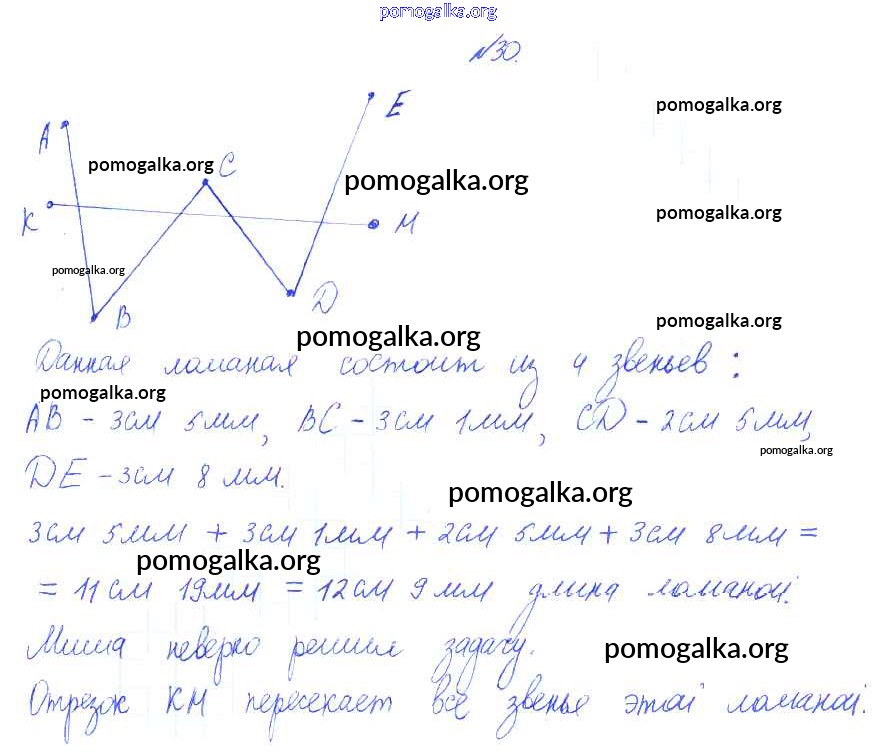 pomogalka.org
№30.
E
pomogalka.org
A
pomogalka.org C
pomogalka.org
K M
pomogalka.org
pomogalka.org
D
B
pomogalka.org
pomogalka.org
Данная ломаная состоит из 4 звеньев:
pomogalka.org
AB - 3см 5мм, BC - 3см 1мм, CD - 2см 5мм,
pomogalka.org
DE - 3см 8 мм.
pomogalka.org
3см 5мм + 3см 1мм + 2см 5мм + 3см 8мм =
pomogalka.org
= 11см 19мм = 12см 9мм длина ломаной.
Миша неверно решил задачу.
pomogalka.org
Отрезок КМ пересекает все звенья этой ломаной.